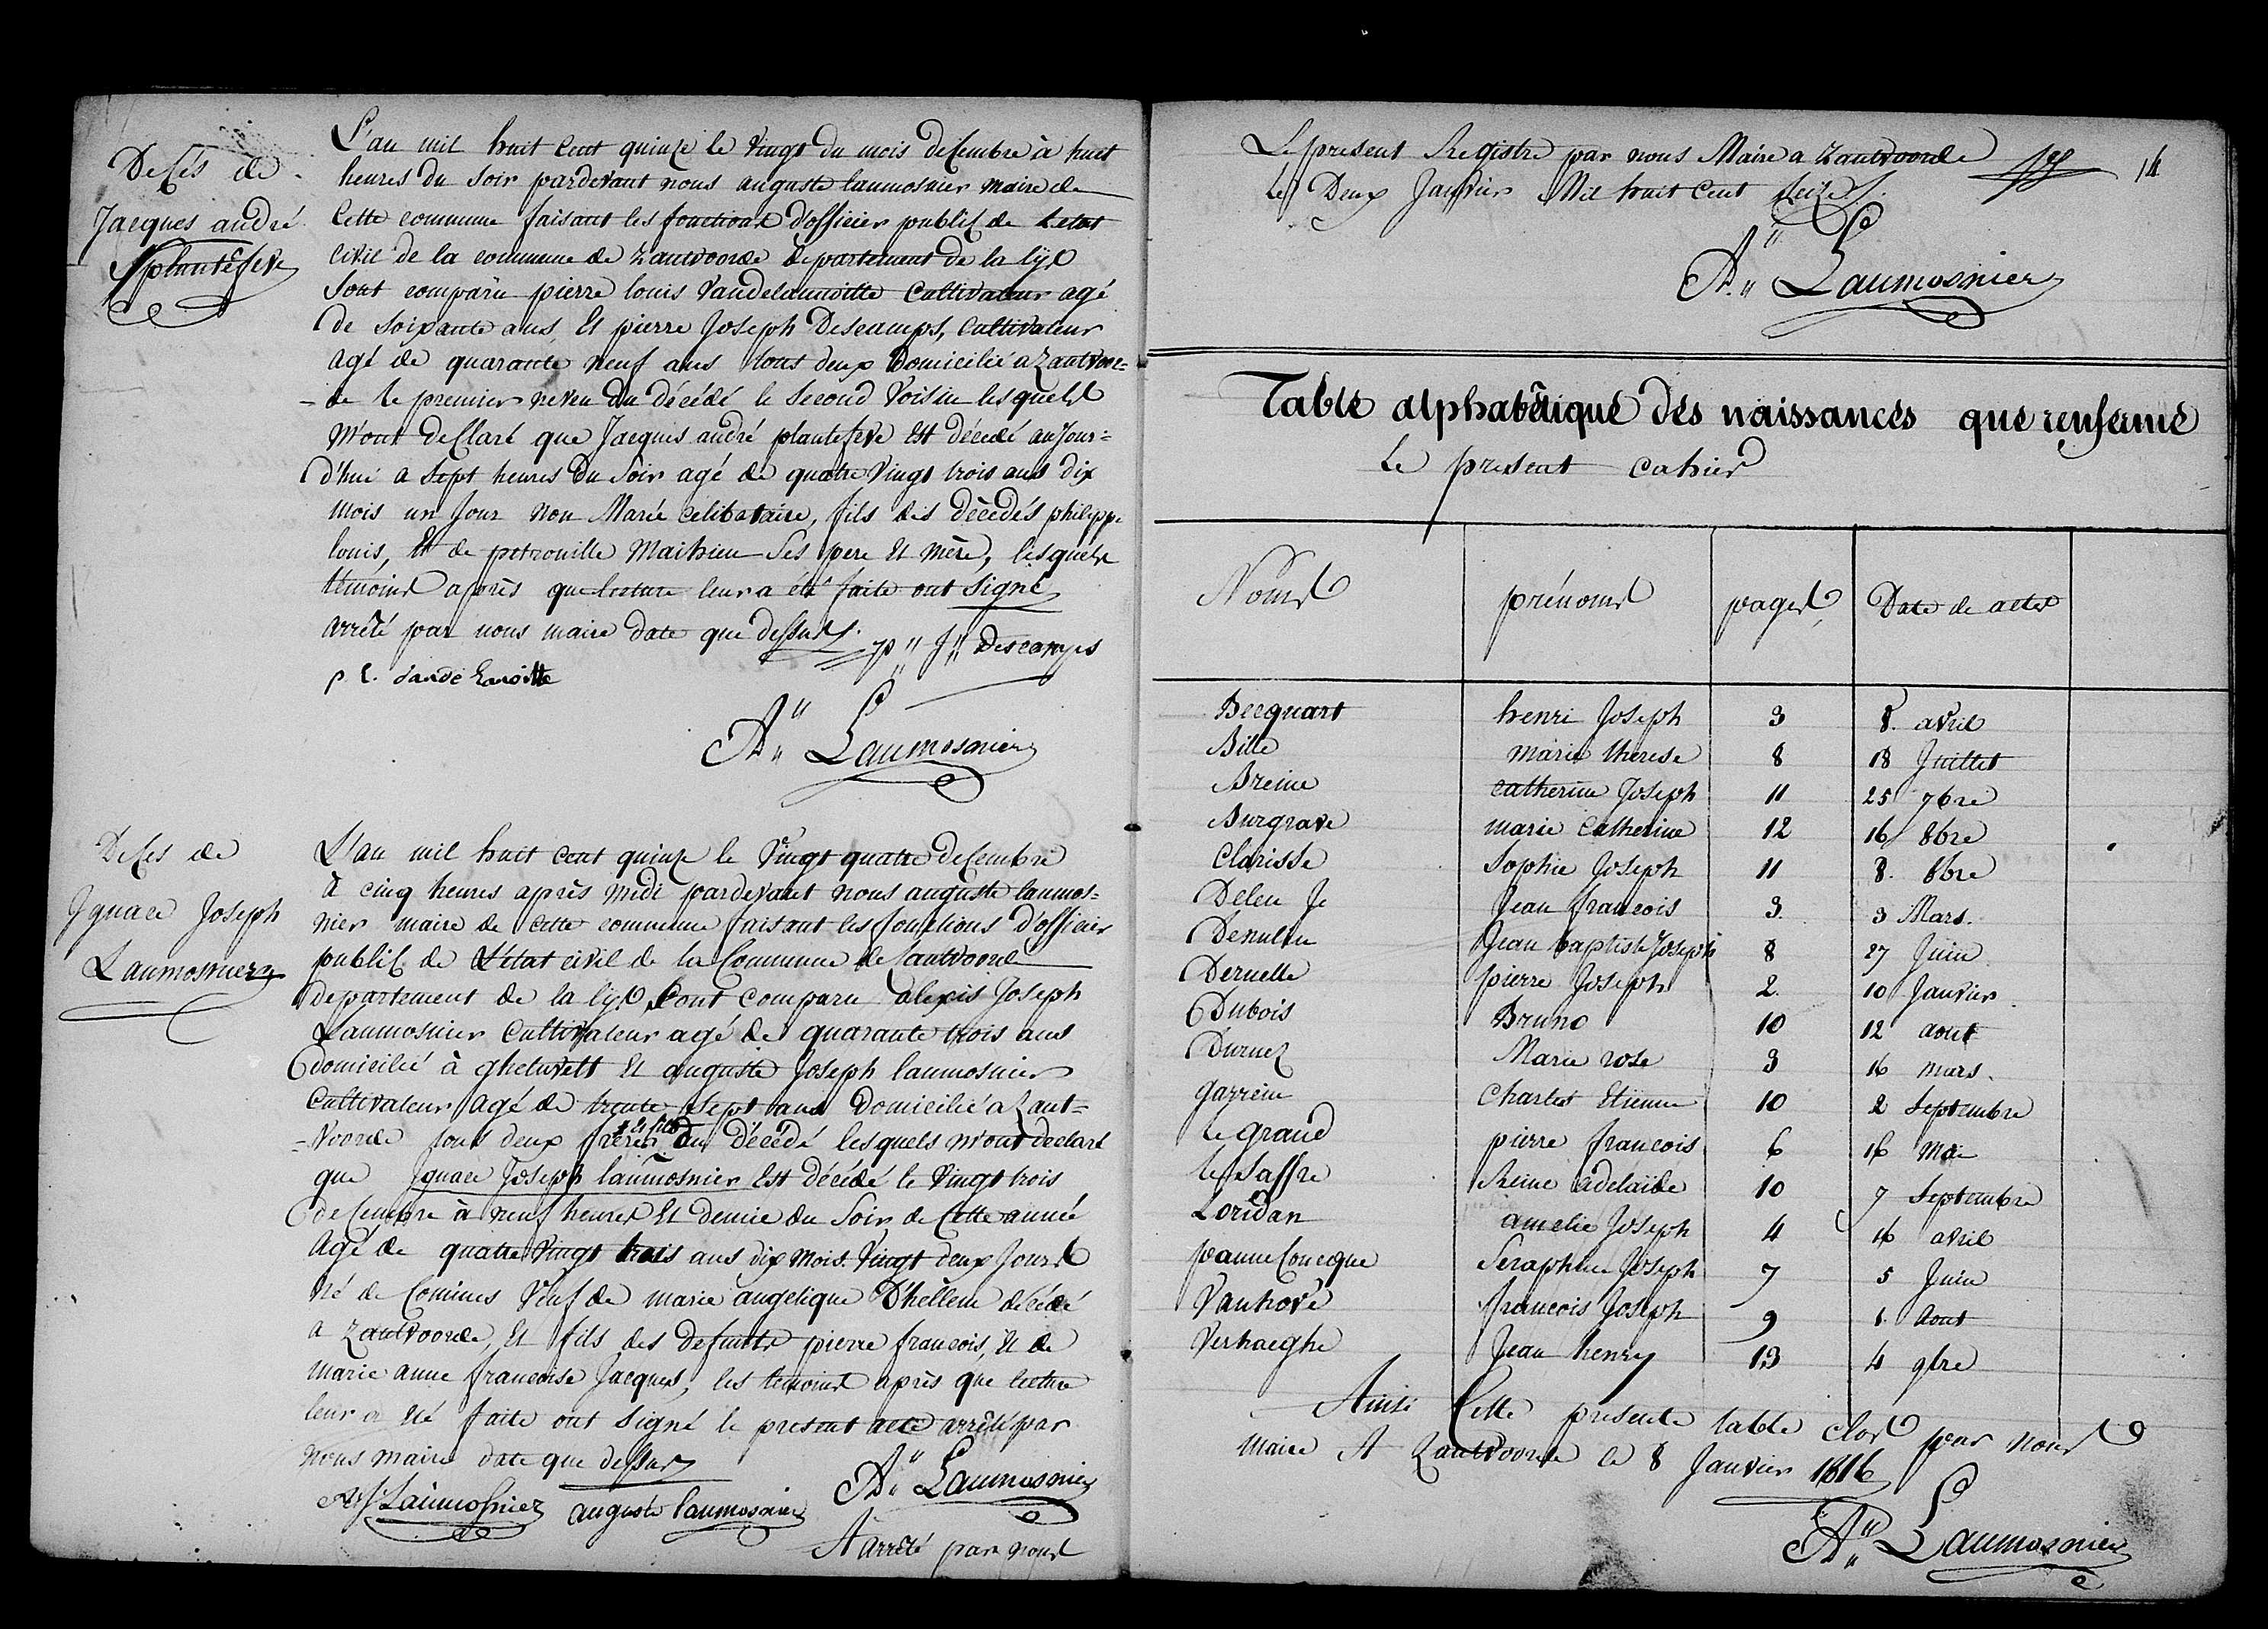 Decés de
Jacques andré
plantefeve
L'an mil huit Cent quinze le Vingt du mois decembre à huit
heures du Soir pardevant nous auguste laumosnier maire de
Cette commune faisant les fonctions d'officier public de L'etat
civil de la commune de Zantvoorde departement de la lys
Sont comparu pierre louis Vandelanoitte Cultivateur agé
de soixante ans, Et pierre Joseph Descamps, Cultivateur
agé de quarante neuf ans tous deux Domicilié a Zantvoor=
-de le premier neveu du décédé le Second Voisin lesquels
M'ont declaré que Jacques andré plantefeve Est décédé aujour=
d'hui a Sept heures du Soir agé de quatre Vingt trois ans dix
mois un Jour non Marié celibataire, fils des décédés philippe
louis, Et de petronille Mathieu Ses pere Et mère, lesquels
temoins après que lecture leur a été faite ont Signé
arrêté par nous maire date que dessus.
p" J" Descamps
p. l. vandelanoitte
A" Laumosnier
Deces de
Ignace Joseph
Laumosnier
L'an mil huit cent quinze le Vingt quatre decembre
à cinq heures après midi pardevant nous auguste laumos=
nier maire de cette commune faisant les fonctions d'officier
public de L'état civil de la Commune de Zantvoorde
departement de la lys Sont comparu alexis Joseph
Laumosnier Cultivateur agé de quarante trois ans
domicilié à gheluvelt Et auguste Joseph laumosnier
Cultivateur agé de trente Sept ans Domicilié a Zant=
-Voorde tous deux freres Et fils du Décédé lesquels m'ont declaré
que Ignace Joseph laumosnier Est décédé le Vingt trois
decembre à neuf heures Et demie du Soir de Cette année
Agé de quatre Vingt trois ans dix mois Vingt deux Jours
Né de Comines Veuf de marie angelique D'hellem décédé
a Zantvoorde, Et fils des defunts pierre francois, Et de
marie anne francoise Jacques, les temoins après que lecture
leur a été faite ont Signé le present acte arrêté par
nous maire date que dessus
A" Laumosnier
A J Laumosnier auguste laumosnier
Arrêté par nous
Le present Registre par nous Maire a Zantvoorde 14
Le Deux Janvier Mil huit Cent Seize.
A" Laumosnier
Table alphabétique des naissances que renferme
Le present cahier
Noms prénoms pages Date de actes
Becquart henri Joseph 3 8. avril
Bille marie therese 8 18 Juillet
Breine catherine Joseph 11 25 7bre
Burgrave marie Catherine 12 16 8bre
Clarisse Sophie Joseph 11 8. 8bre
Deleu Jean francois 3. 3 Mars.
Denulin Jean baptiste Joseph 8 27 Juin
Deruelle pierre Joseph 2. 10 Janvier
Dubois Bruno 10 12 aout
Durnez Marie rose 3 16 mars.
garrein Charles Etienne 10 2 Septembre
Le grand pierre francois 6 16 Mai
Le Saffre Reine adelaïde 10 7 Septembre
Loridan amelie Joseph 4 16 avril
pannecoucque Seraphine Joseph 7 5 Juin
Vanhové francois Joseph 9 1. Aout
Verhaeghe Jean henry 13 4 9bre
Ainsi Cette presente table clos par nous
Maire A Zantvoorde le 8 Janvier 1816
A" Laumosnier